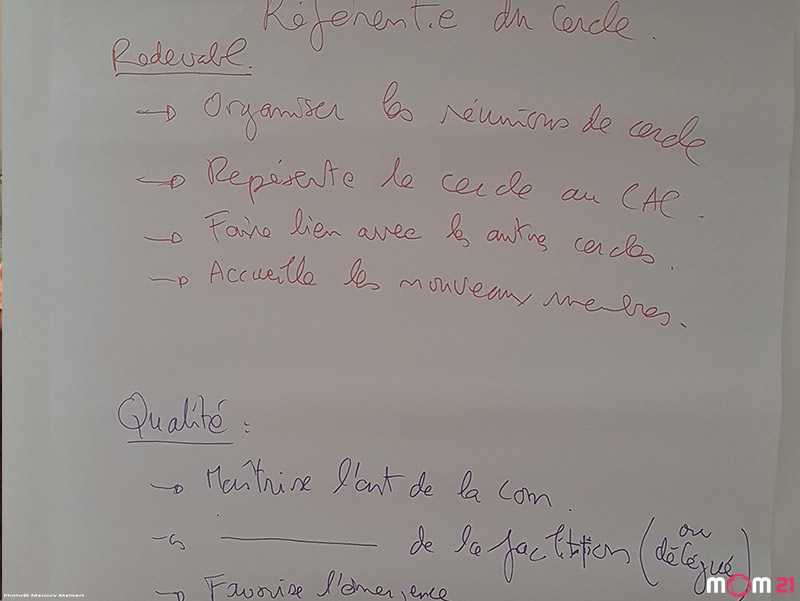 Référent.e du cercle.
Redevabl.
→ Organiser les réunions de cercle
→ Représente le cercle au CAC.
→ Faire lien avec les autres cercles.
→ Accueille les nouveaux membres.
Qualité :
→ Maîtrise l'art de la com.
→ ——— de la facilitation (ou délégué)
→ Favorise l'émergence
Photo© Mallory Malbert
MOM 21